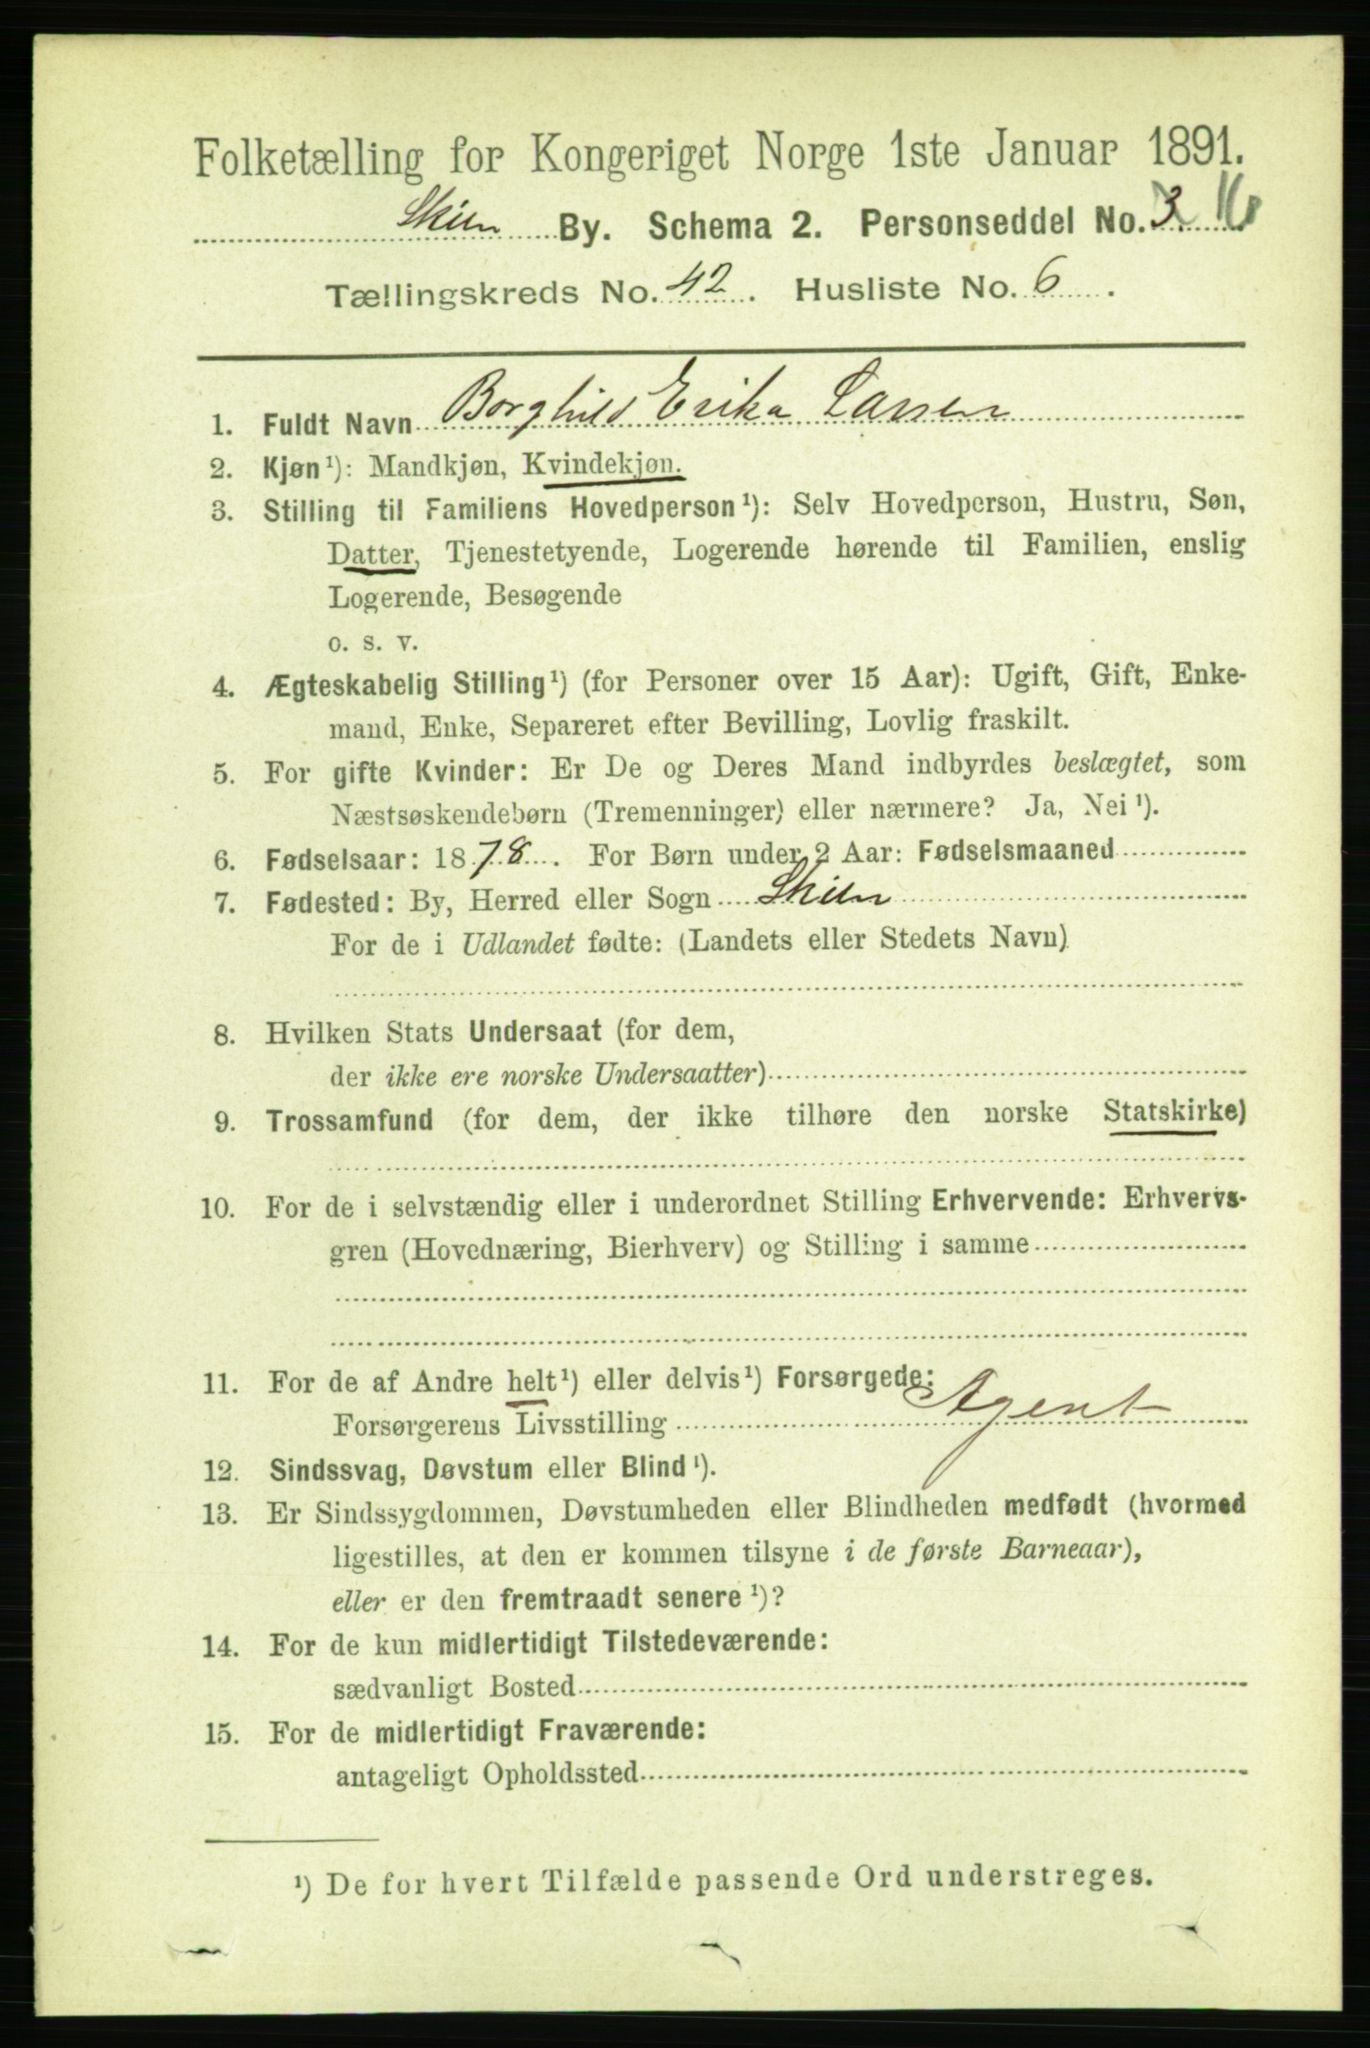 Folketælling for Kongeriget Norge 1ste Januar 1891.
Skien By. Schema 2. Personseddel No. 3. 16
Tællingskreds No. 42. Husliste No. 6.
1. Fuldt Navn Borghild Erika Larsen
2. Kjøn¹): Mandkjøn, Kvindekjøn.
3. Stilling til Familiens Hovedperson¹): Selv Hovedperson, Hustru, Søn,
Datter, Tjenestetyende, Logerende hørende til Familien, enslig
Logerende, Besøgende
o. s. v.
4. Ægteskabelig Stilling¹) (for Personer over 15 Aar): Ugift, Gift, Enke-
mand, Enke, Separeret efter Bevilling, Lovlig fraskilt.
5. For gifte Kvinder: Er De og Deres Mand indbyrdes beslægtet, som
Næstsøskendebørn (Tremenninger) eller nærmere? Ja, Nei¹).
6. Fødselsaar: 1878. For Børn under 2 Aar: Fødselsmaaned
7. Fødested: By, Herred eller Sogn Skien
For de i Udlandet fødte: (Landets eller Stedets Navn)
8. Hvilken Stats Undersaat (for dem,
der ikke ere norske Undersaatter)
9. Trossamfund (for dem, der ikke tilhøre den norske Statskirke)
10. For de i selvstændig eller i underordnet Stilling Erhvervende: Erhvervs-
gren (Hovednæring, Bierhverv) og Stilling i samme
11. For de af Andre helt¹) eller delvis¹) Forsørgede:
Forsørgerens Livsstilling Agent
12. Sindssvag, Døvstum eller Blind¹).
13. Er Sindssygdommen, Døvstumheden eller Blindheden medfødt (hvormed
ligestilles, at den er kommen tilsyne i de første Barneaar),
eller er den fremtraadt senere¹)?
14. For de kun midlertidigt Tilstedeværende:
sædvanligt Bosted
15. For de midlertidigt Fraværende:
antageligt Opholdssted
¹) De for hvert Tilfælde passende Ord understreges.